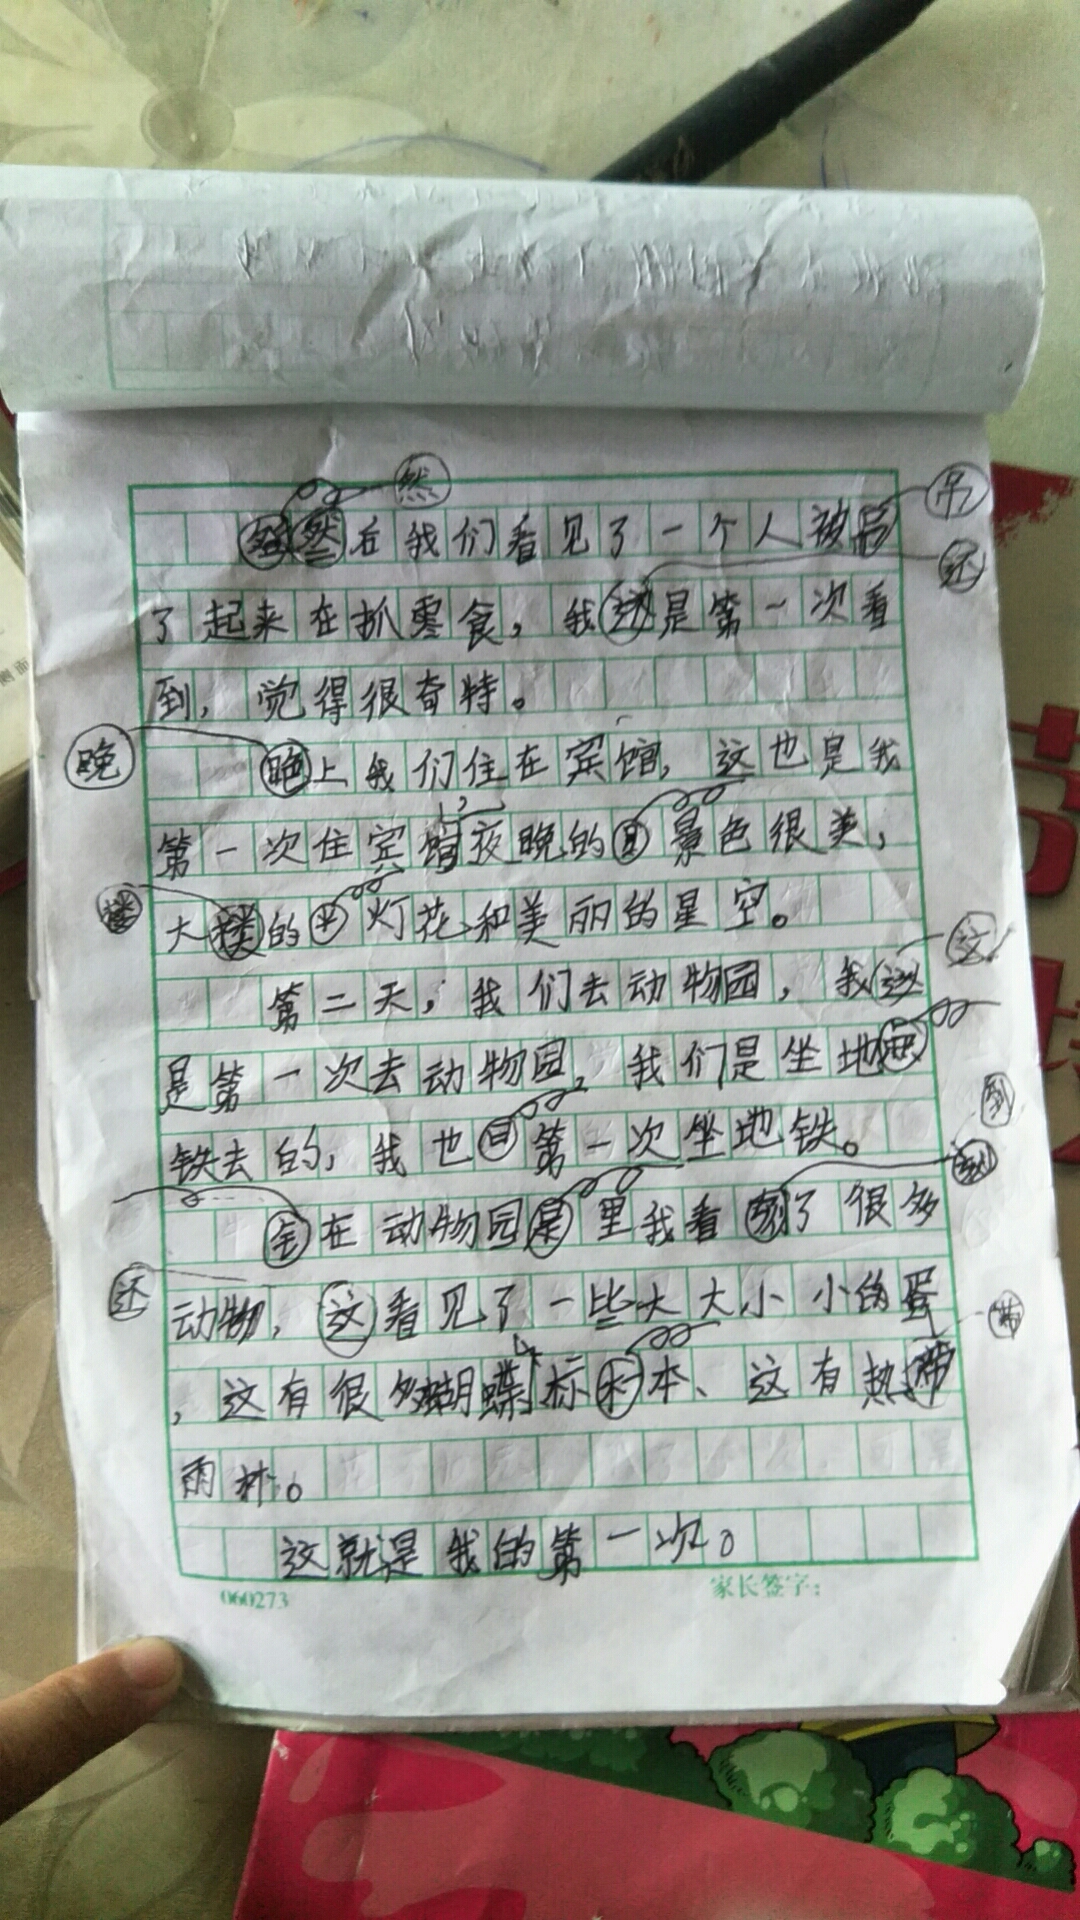 然
吊
然后我们看见了一个人被
还
了起来在抓零食，我是第一次看
到，觉得很奇特。
晚
晚上我们住在宾馆，这也是我
第一次住宾馆夜晚的景色很美，
楼
大楼的灯花和美丽的星空。
这
第二天，我们去动物园，我这
是第一次去动物园，我们是坐地
到
铁去的，我也第一次坐地铁。
在动物园里我看到了很多
还
动物，这看见了一些大大小小的蛋
带
，这有很多蝴蝶标本、这有热带
雨林。
这就是我的第一次。
060273
家长签字：